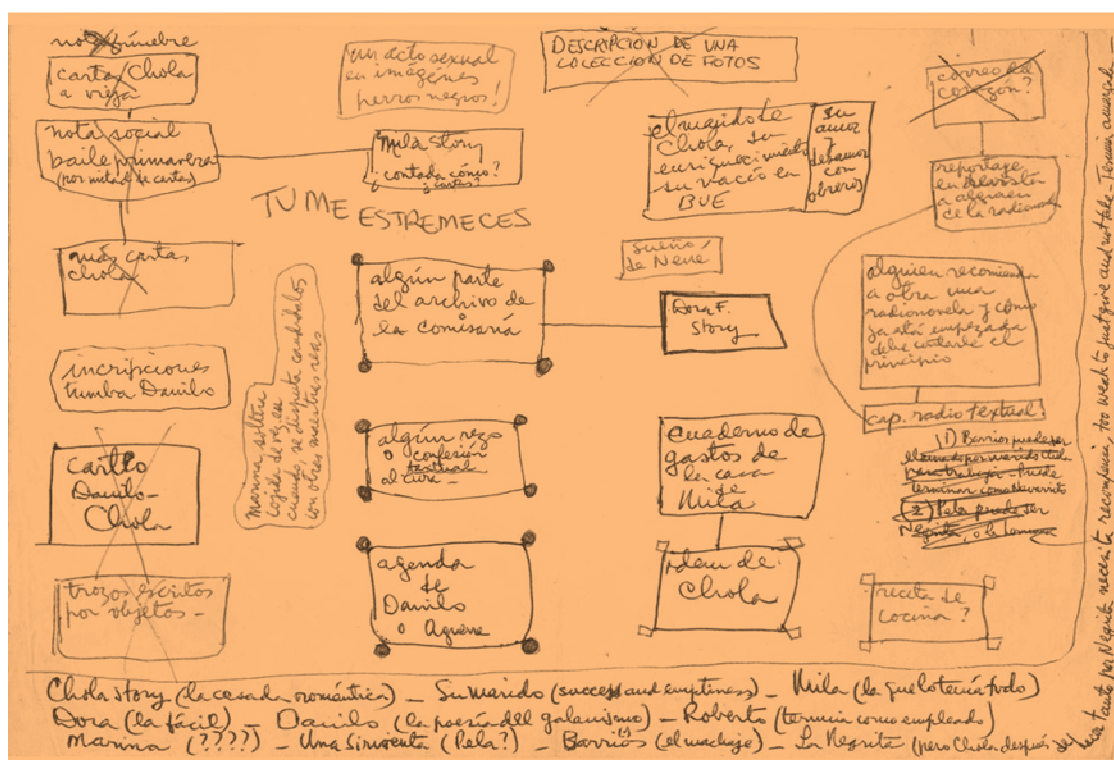 nota fúnebre
cartas Chola
a vieja
nota social
baile primavera
(por mitad de cartas)
más cartas
Chola
incripciones
tumba Danilo
carta
Danilo—
Chola
trozos escritos
por objetos—
un acto sexual
en imágenes
perros negros!
Mila story
¿contada cómo?
¿cartas?
TU ME ESTREMECES
algún parte
del archivo de
la comisaría
Marina, soltera
cojida de vez en
cuando, se disputa candidatos
con otras mientras reza
algún rezo
o confesión
textual
al cura—
agenda
de
Danilo
o Aguene
DESCRIPCION DE UNA
COLECCION DE FOTOS
el marido de
Chola, su
enriquecimiento
su vacío en
BUE
su
amor
y
desamor
con
obreros
sueño
de Nene
Dora F.
Story
cuaderno de
gastos de
la casa
de
Mila
idem de
Chola
correo del
corazón?
reportaje
en revista
a alguien
de la radionov.
alguien recomienda
a otra una
radionovela y cómo
ya está empezada
debe contarle el
principio
cap. radio textual
1) Barrios puede ser
terminar como
2) Pela puede ser
Negrita, o la
receta de
cocina?
Chola story (la casada romántica) — Su marido (success and emptiness) — Mila (la que lo tenía todo)
Dora (la fácil) — Danilo (la poesía del galanismo) — Roberto (termina como empleado)
Marina (????) — Una sirvienta (Pela?) — Barrios (el machaje) — La Negrita (pero Chola después del
tanto por Negrita necesita recomenzar too weak to just give and not take